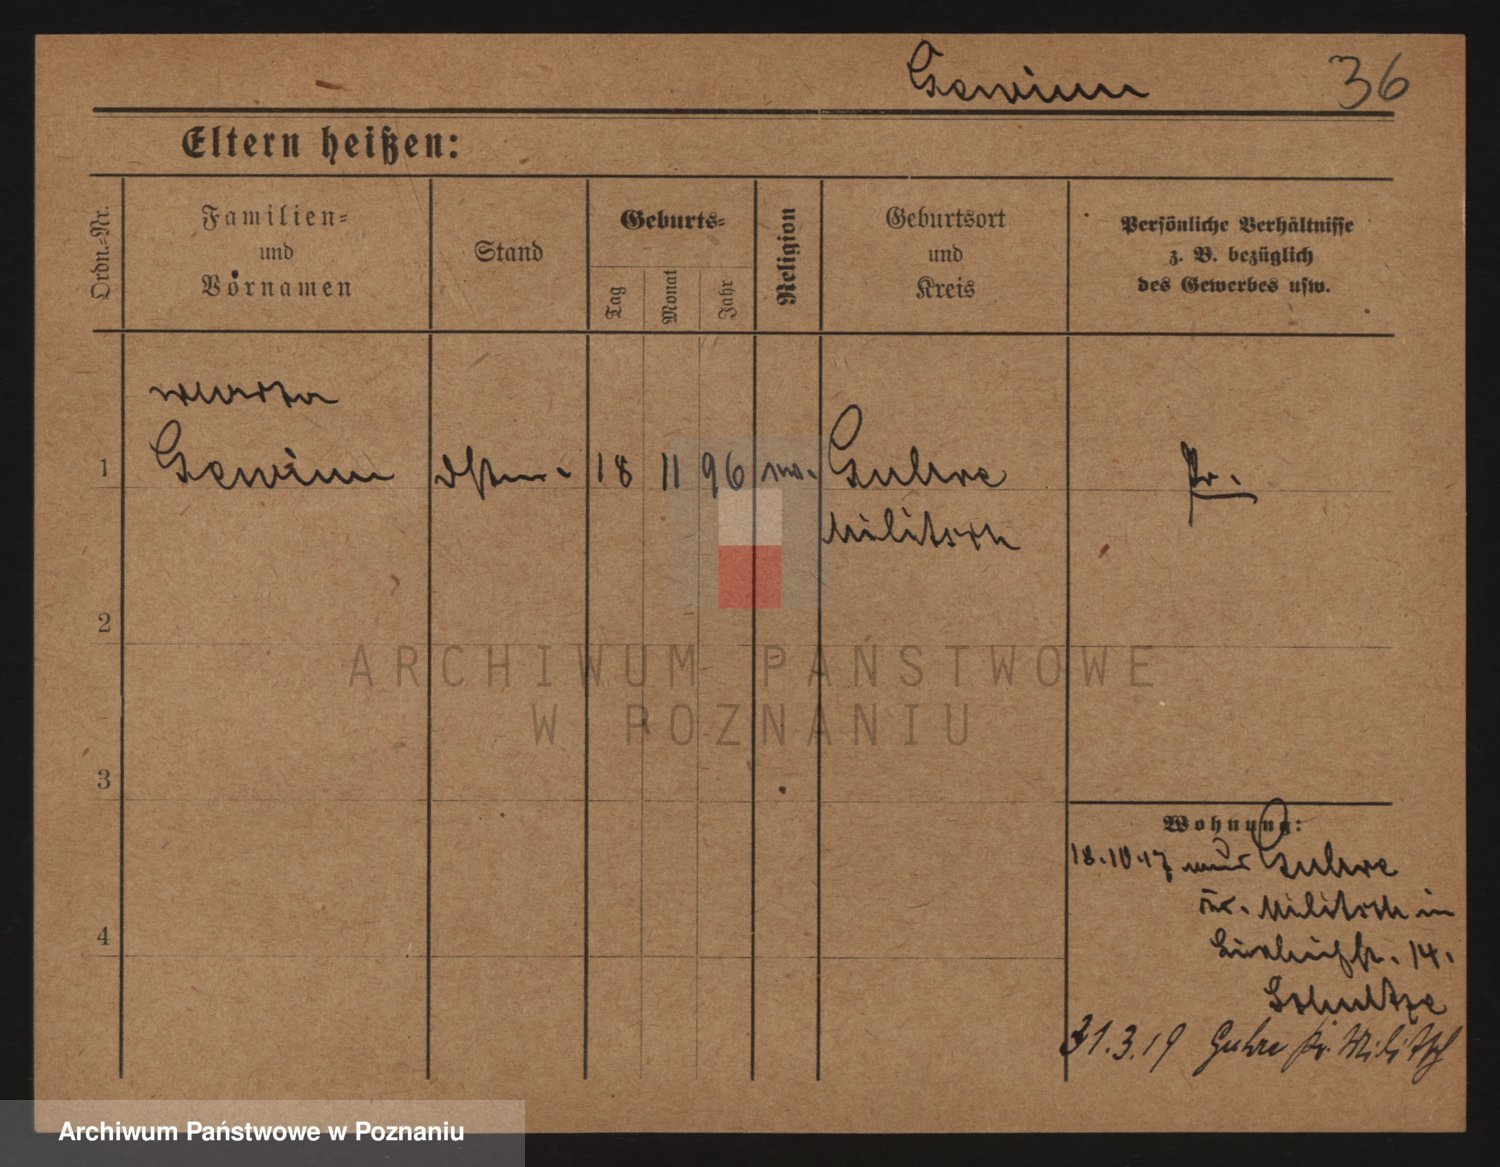 Gewinn 36
Eltern heißen:
Ordn.-Nr.
Familien-
und
Vornamen
Stand
Geburts-
Tag
Monat
Jahr
Religion
Geburtsort
und
Kreis
Persönliche Verhältnisse
z. B. bezüglich
des Gewerbes usw.
Gewinn
1 18 11 96 Guhre Pr.
Militsch
2
3
4
Wohnung:
18.10.17 aus Guhre
Kr. Militsch in
14.
Schultze
31.3.19 Guhre Kr. Militsch
ARCHIWUM PAŃSTWOWE
W POZNANIU
Archiwum Państwowe w Poznaniu